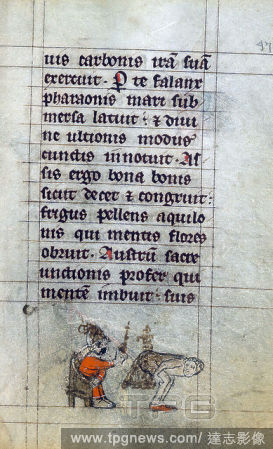 uis carbonis irā suā
exercuit. P te falanx
pharaonis mari sub
mersa latuit: ⁊ diui
ne ultionis modus
cunctis innotuit. As
sis ergo bona bonis
sicut decet ⁊ congruit:
frigus pellens aquilo
nis qui mentis flores
obruit. Austrū sacre
unctionis profer qui
mentē imbuit: suis
TPG
www.tpgnews.com/ 達志影像